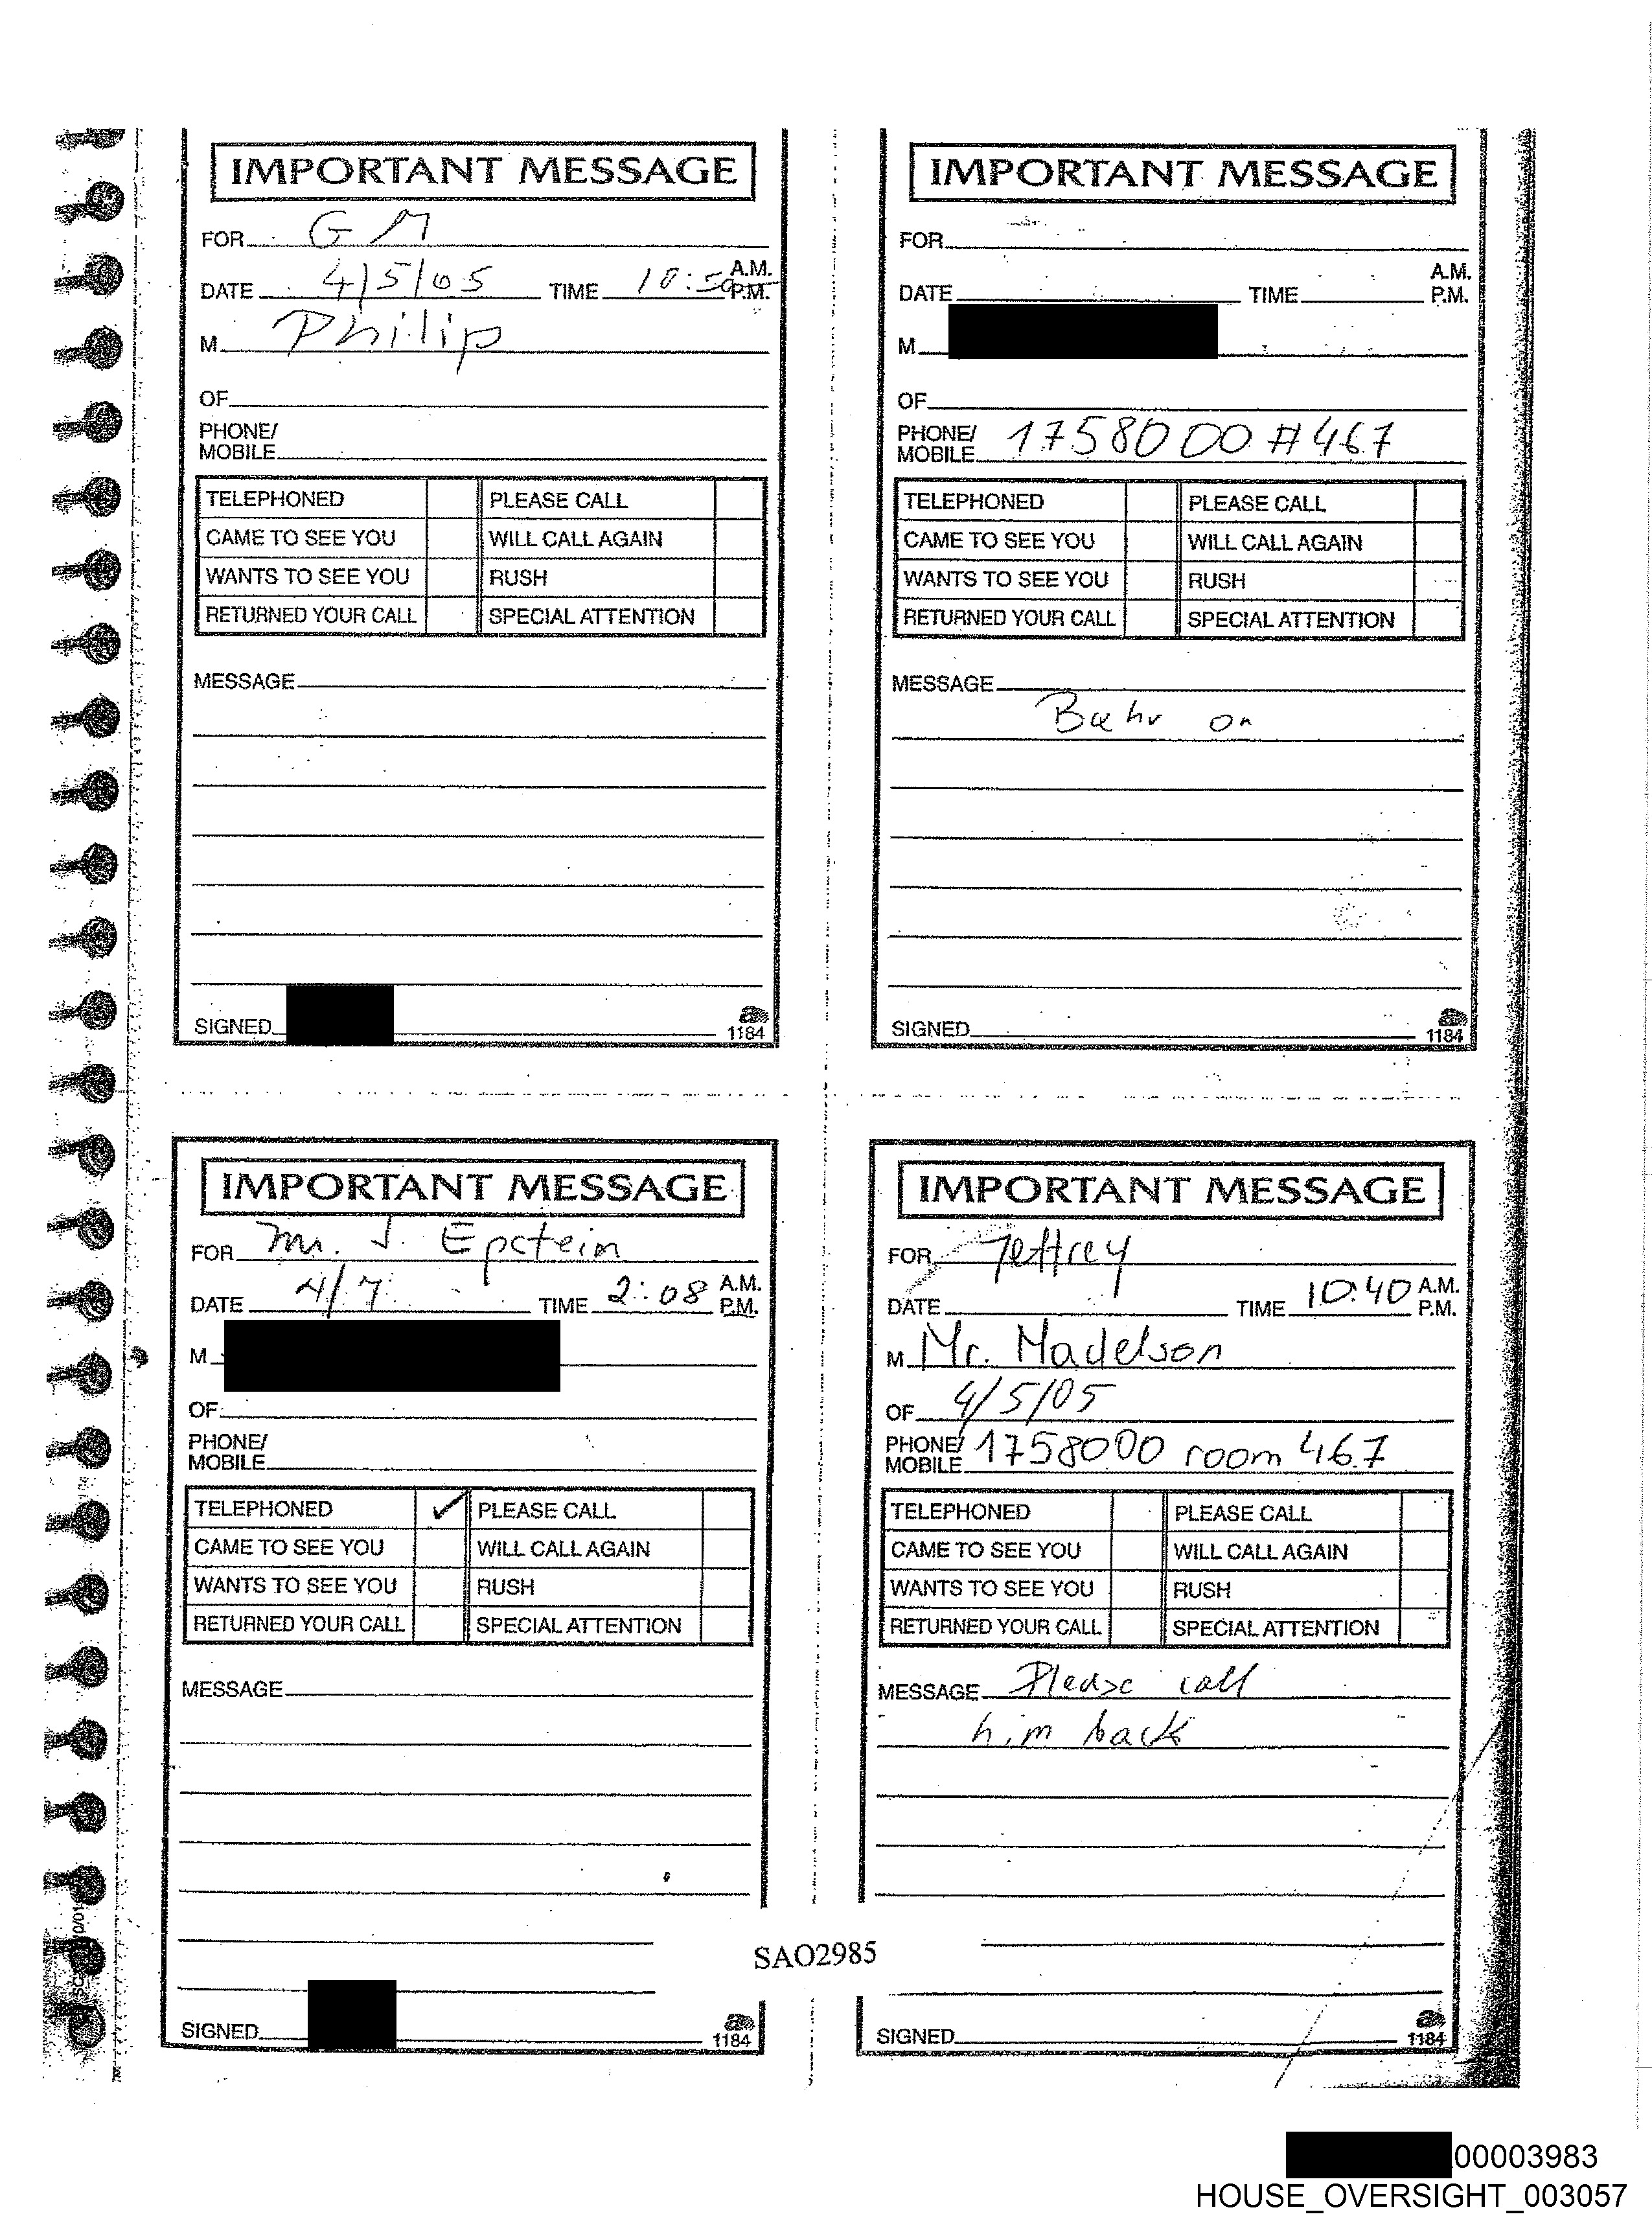 IMPORTANT MESSAGE
FOR G M
DATE 4/5/05 TIME 10:50 A.M. P.M.
M Philip
OF
PHONE/
MOBILE
TELEPHONED PLEASE CALL
CAME TO SEE YOU WILL CALL AGAIN
WANTS TO SEE YOU RUSH
RETURNED YOUR CALL SPECIAL ATTENTION
MESSAGE
SIGNED
1184
IMPORTANT MESSAGE
FOR
DATE TIME A.M. P.M.
M
OF
PHONE/
MOBILE 1758000 #467
TELEPHONED PLEASE CALL
CAME TO SEE YOU WILL CALL AGAIN
WANTS TO SEE YOU RUSH
RETURNED YOUR CALL SPECIAL ATTENTION
MESSAGE
on
SIGNED
1184
IMPORTANT MESSAGE
FOR Mr. J. Epctein
DATE 4/7 TIME 2:08 A.M. P.M.
M
OF
PHONE/
MOBILE
TELEPHONED ✓ PLEASE CALL
CAME TO SEE YOU WILL CALL AGAIN
WANTS TO SEE YOU RUSH
RETURNED YOUR CALL SPECIAL ATTENTION
MESSAGE
SIGNED
1184
IMPORTANT MESSAGE
FOR Jeffrey
DATE TIME 10:40 A.M. P.M.
M Mr. Madelson
OF 4/5/05
PHONE/
MOBILE 1758000 room 467
TELEPHONED PLEASE CALL
CAME TO SEE YOU WILL CALL AGAIN
WANTS TO SEE YOU RUSH
RETURNED YOUR CALL SPECIAL ATTENTION
MESSAGE Please call
him back
SIGNED
1184
SAO2985
00003983
HOUSE_OVERSIGHT_003057